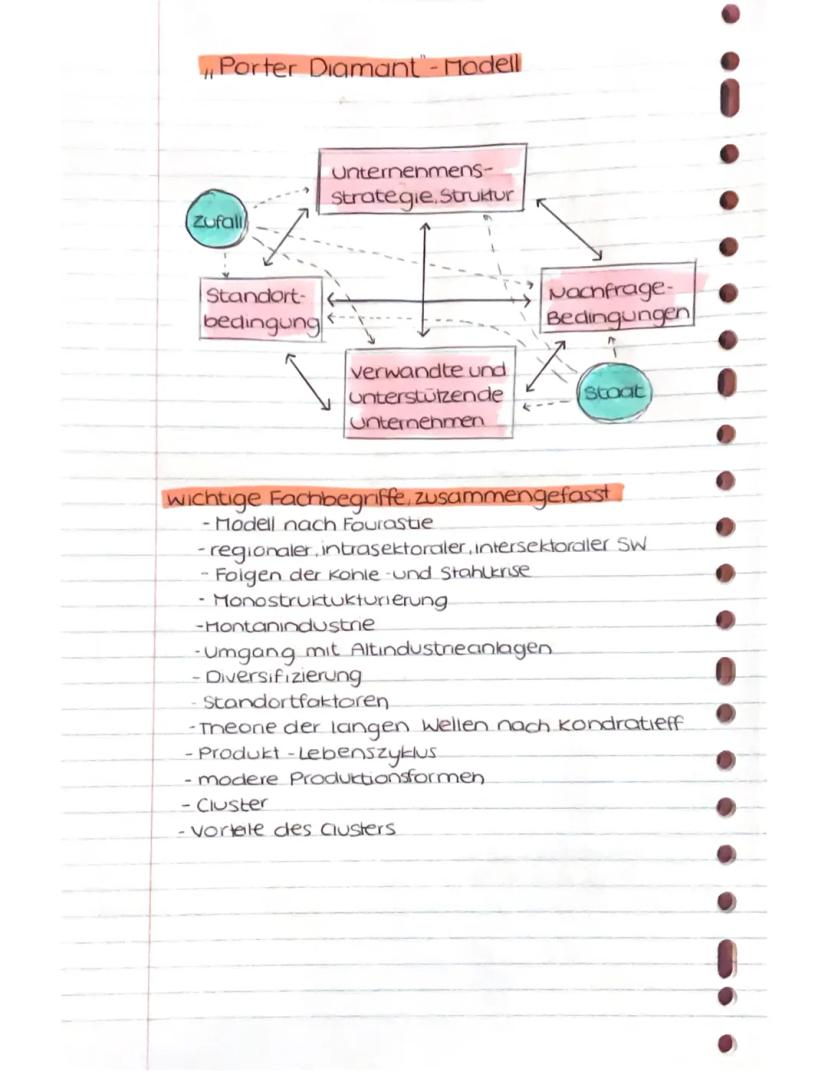 „Porter Diamant"-Modell
Unternehmens-
strategie, Struktur
Zufall
Standort-
bedingung
Nachfrage-
Bedingungen
Verwandte und
unterstützende
Unternehmen
Staat
wichtige Fachbegriffe, zusammengefasst
- Modell nach Fourastie
- regionaler, intrasektoraler, intersektoraler SW
- Folgen der Kohle-und Stahlkrise
- Monostruktukturierung
- Montanindustrie
- Umgang mit Altindustrieanlagen
- Diversifizierung
- Standortfaktoren
- Theorie der langen Wellen nach Kondratieff
- Produkt-Lebenszyklus
- modere Produktionsformen
- Cluster
- Vorteile des Clusters